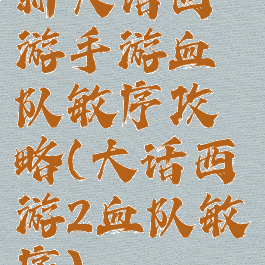 新大话西
游手游血
队敏序攻
略(大话西
游2血队敏
序)